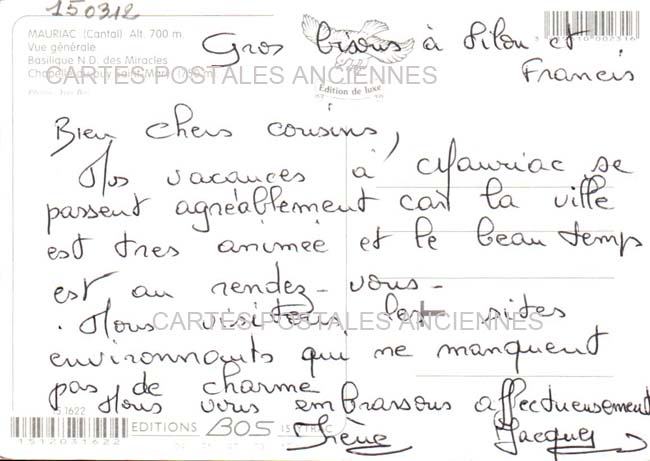 150312
MAURIAC (Cantal) Alt. 700 m.
Vue générale
Basilique N.D. des Miracles
Gros bisous à Lilou et
Francis
CARTES POSTALES ANCIENNES
Edition de luxe
Bien chers cousins,
Nos vacances à Mauriac se
passent agréablement car la ville
est tres animée et le beau temps
est au rendez-vous-
. Nous visitons les sites
CARTES POSTALES ANCIENNES
environnants qui ne manquent
pas de charme
Nous vous embrassons affectueusement
1622
EDITIONS BOS
Irène Jacques
1512031622